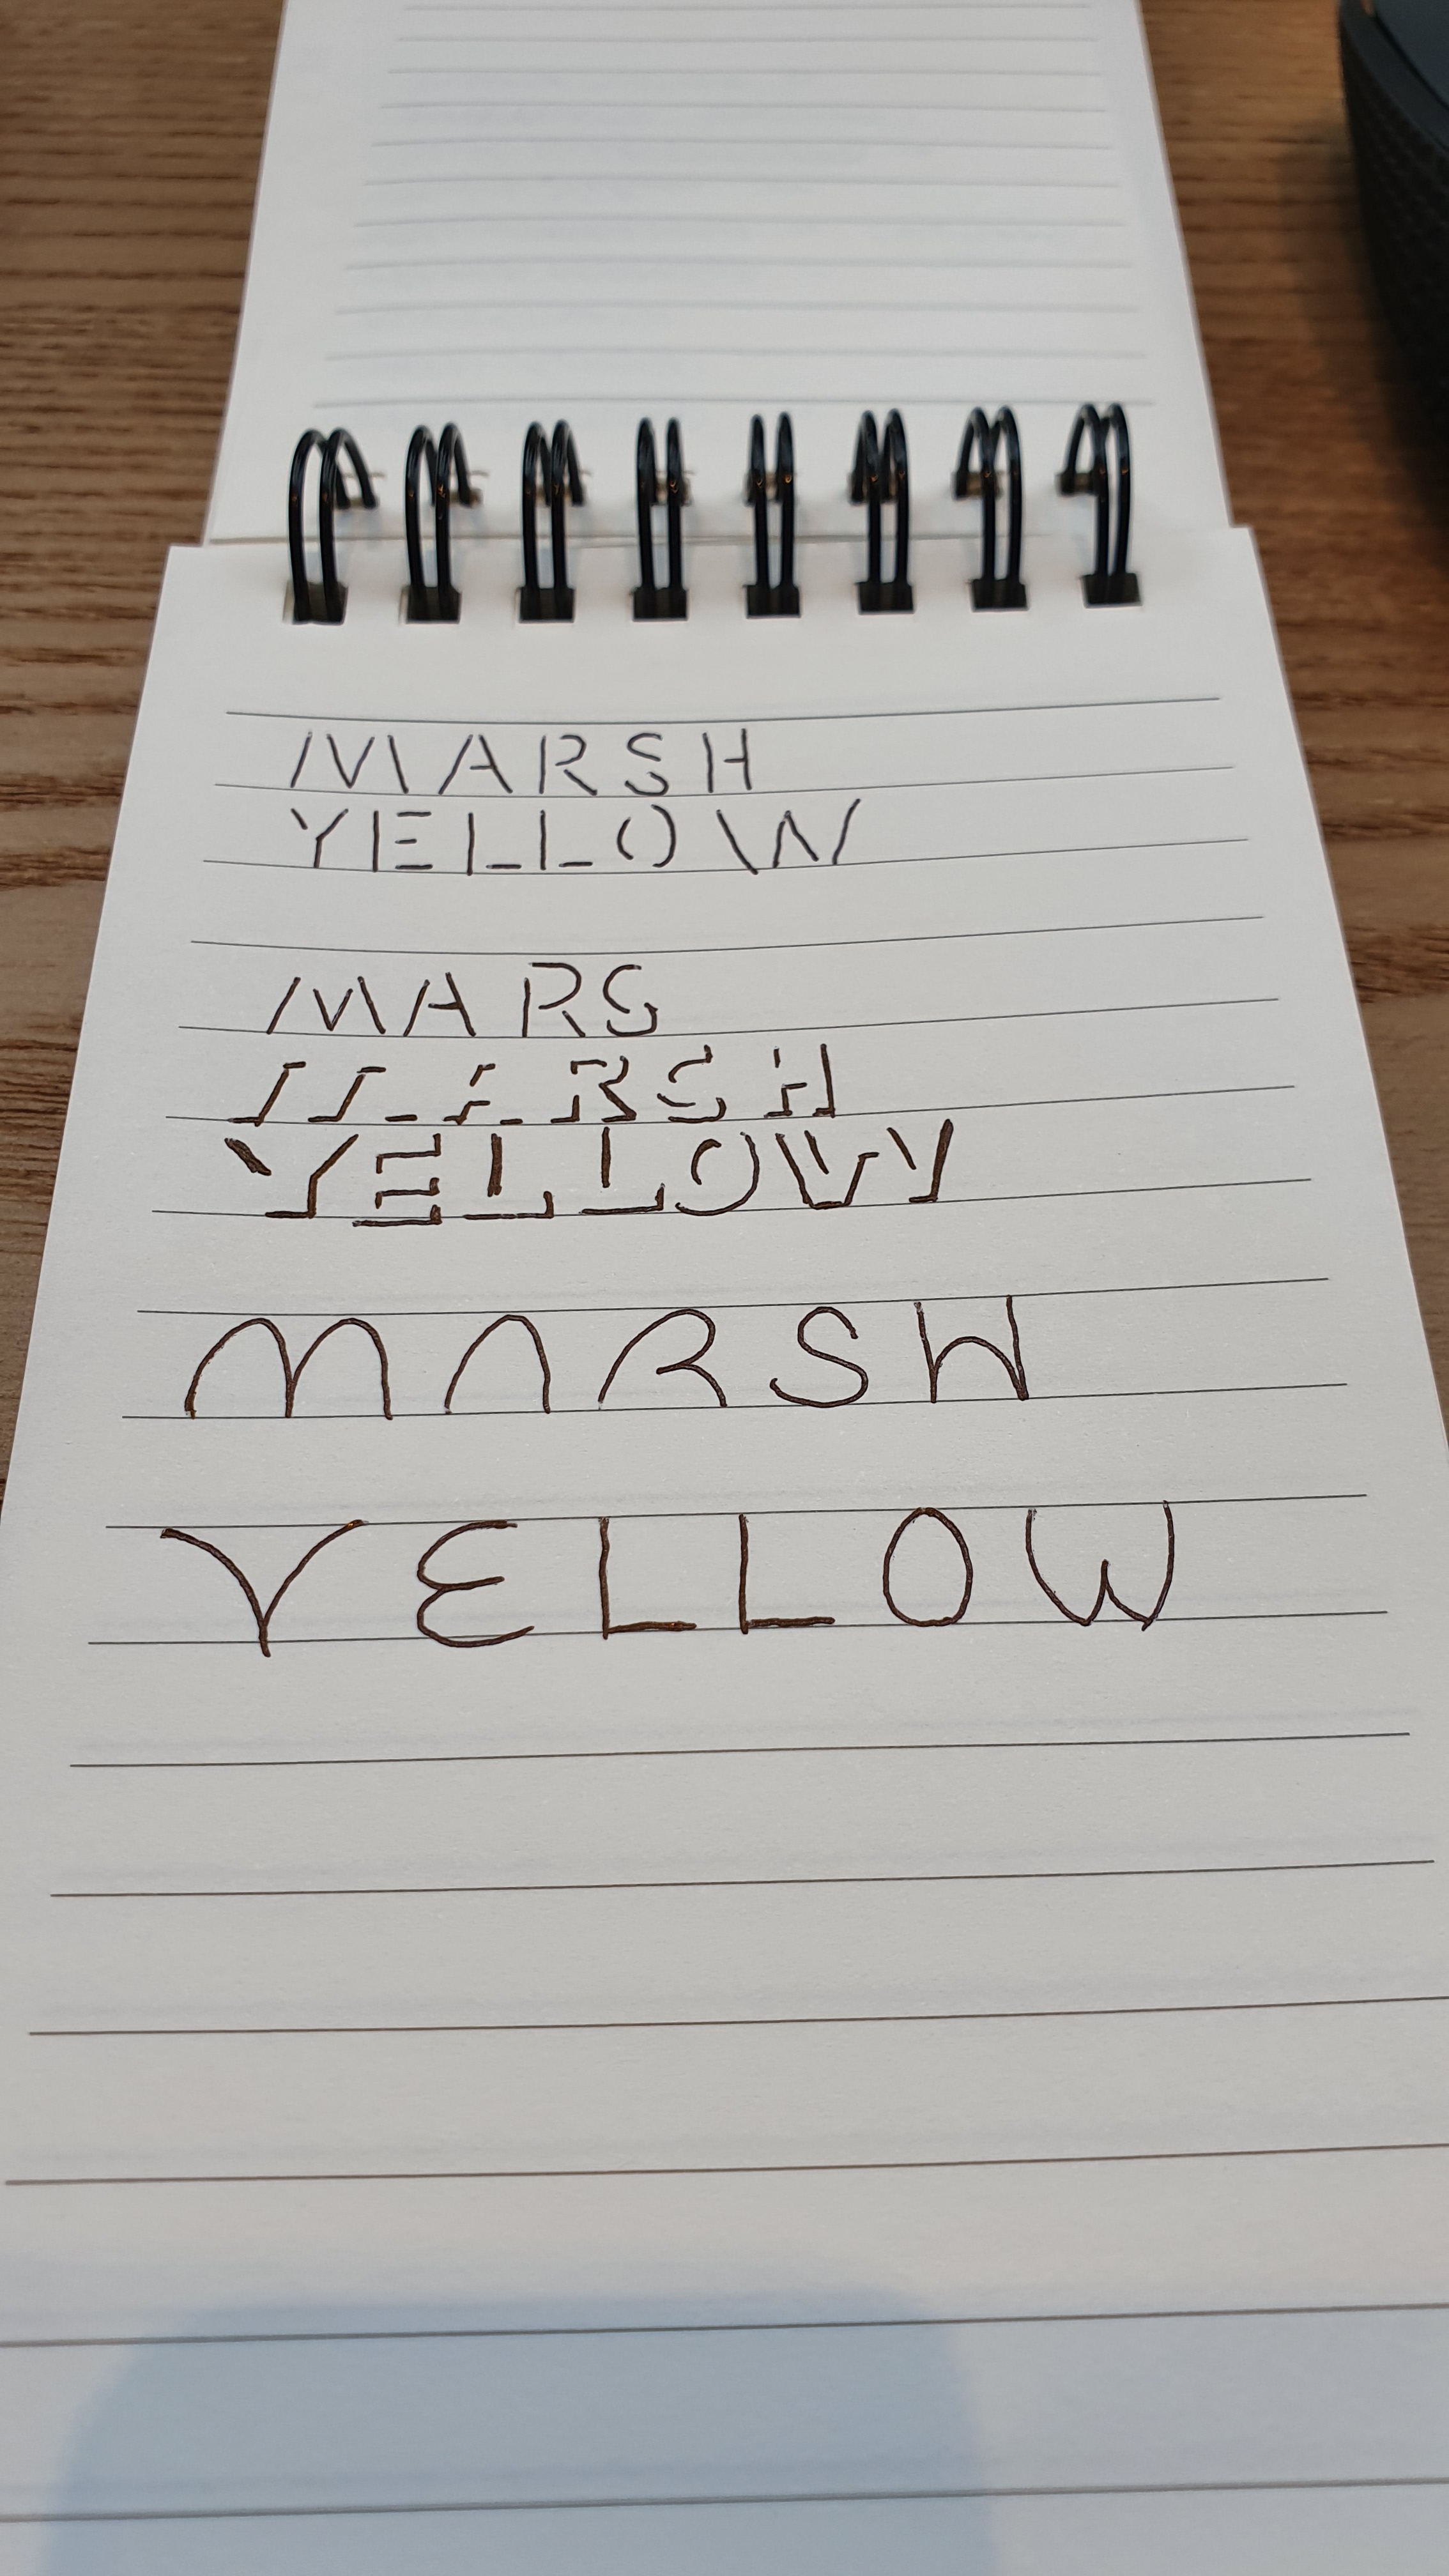 MARSH
YELLOW
MARS
MARSH
YELLOW
MARSH
YELLOW